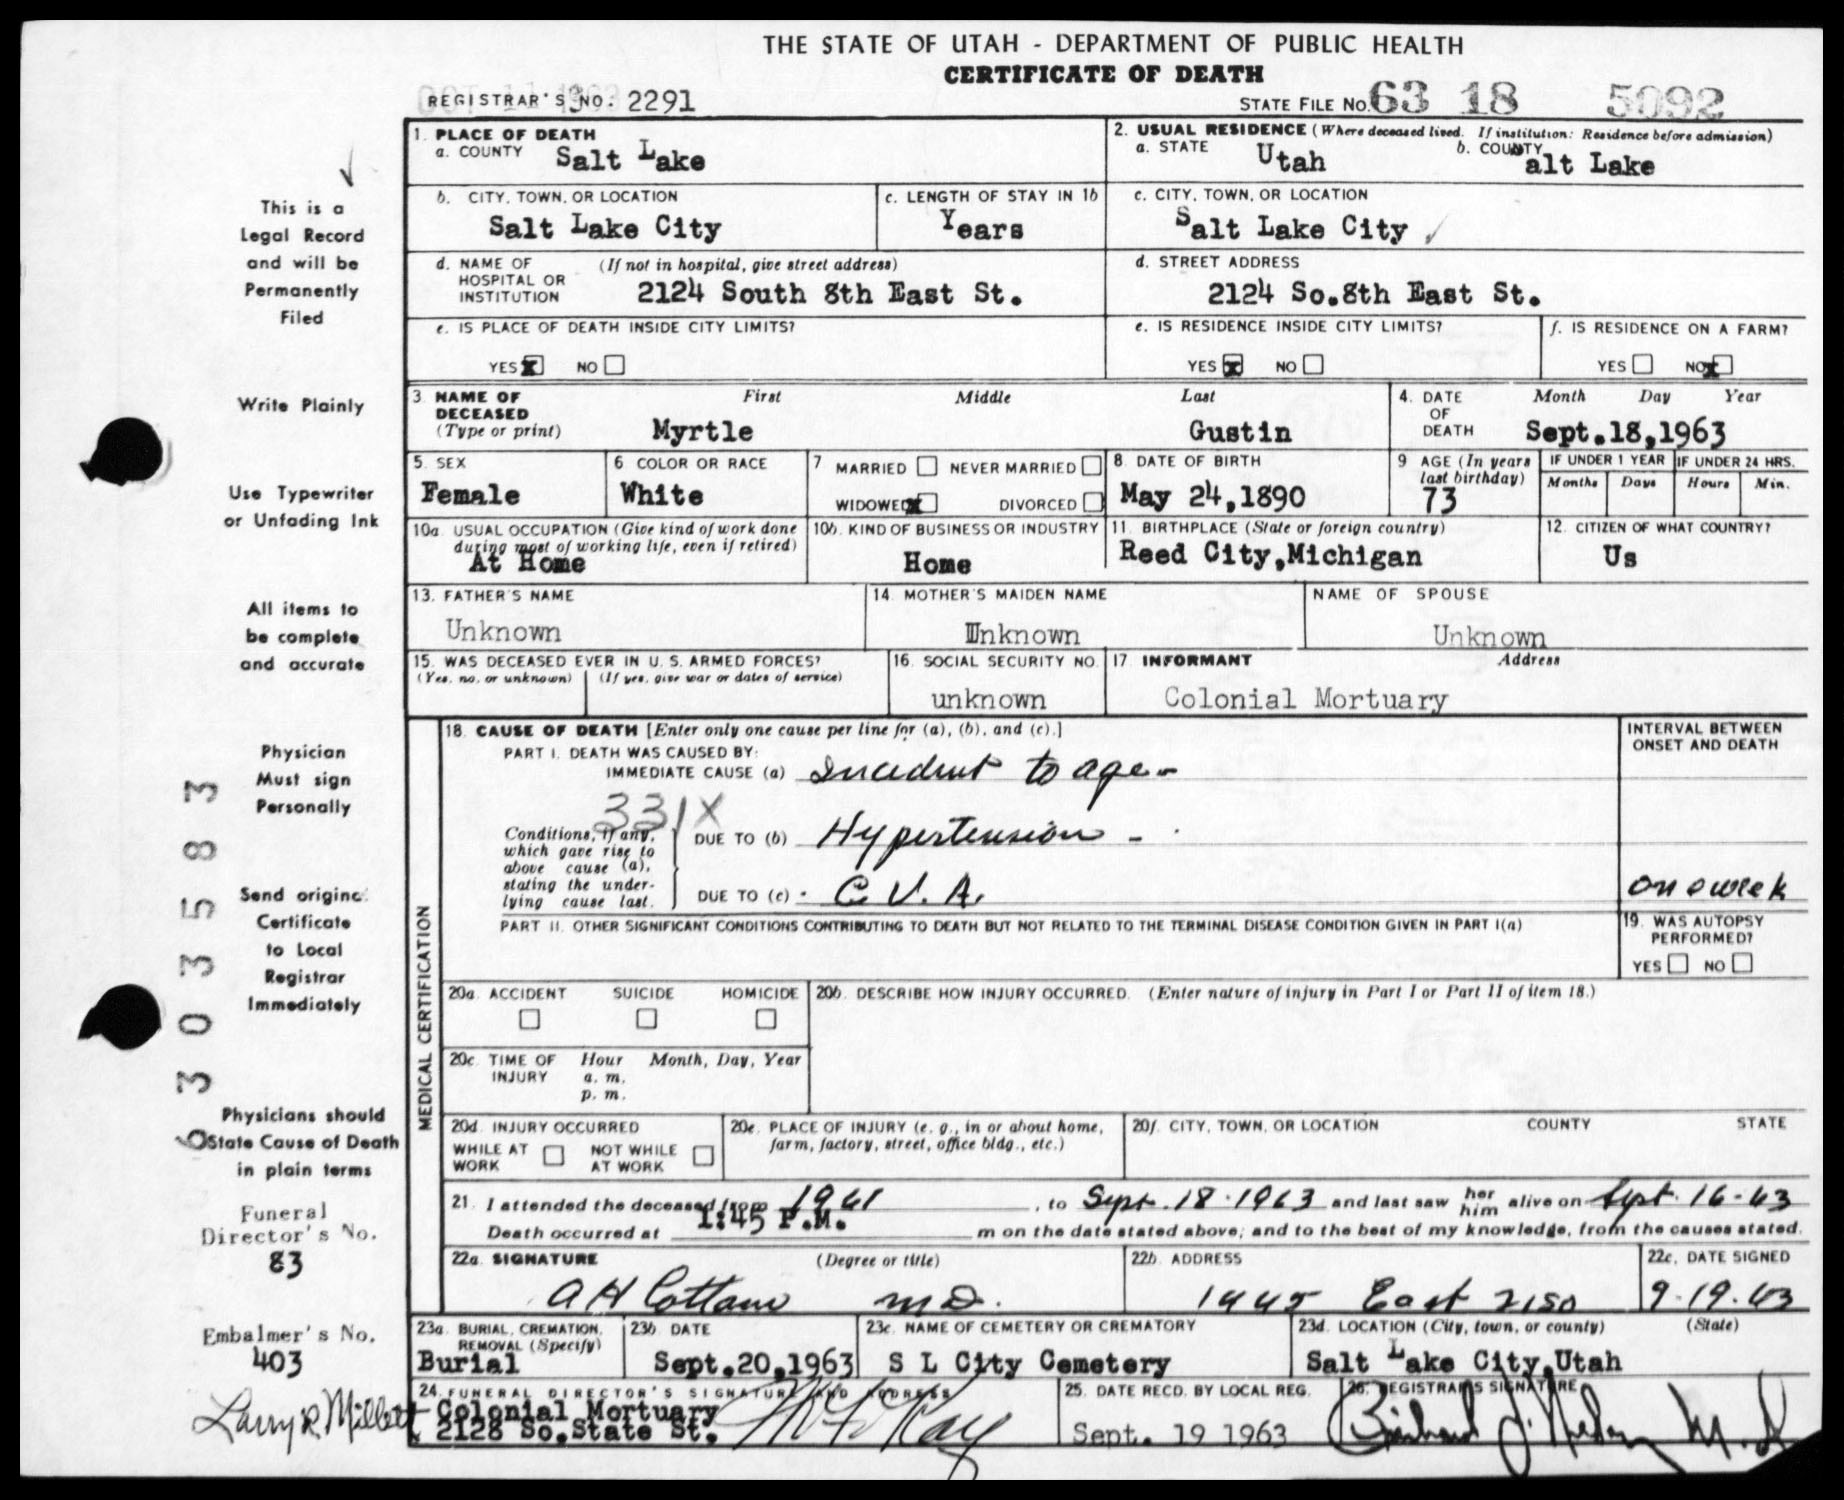 THE STATE OF UTAH - DEPARTMENT OF PUBLIC HEALTH
CERTIFICATE OF DEATH
OCT 11 1963
REGISTRAR'S NO. 2291
STATE FILE NO. 63 18 5092
1. PLACE OF DEATH
a. COUNTY Salt Lake
2. USUAL RESIDENCE (Where deceased lived. If institution: Residence before admission)
a. STATE Utah b. COUNTY alt Lake
b. CITY, TOWN, OR LOCATION
Salt Lake City
c. LENGTH OF STAY IN 1b
Years
c. CITY, TOWN, OR LOCATION
Salt Lake City
d. NAME OF HOSPITAL OR INSTITUTION (If not in hospital, give street address)
2124 South 8th East St.
d. STREET ADDRESS
2124 So.8th East St.
e. IS PLACE OF DEATH INSIDE CITY LIMITS?
YES X NO
e. IS RESIDENCE INSIDE CITY LIMITS?
YES X NO
f. IS RESIDENCE ON A FARM?
YES NO X
3. NAME OF DECEASED (Type or print)
First Middle Last
Myrtle Gustin
4. DATE OF DEATH Month Day Year
Sept.18,1963
5. SEX
Female
6. COLOR OR RACE
White
7 MARRIED NEVER MARRIED
WIDOWED X DIVORCED
8. DATE OF BIRTH
May 24,1890
9 AGE (In years last birthday)
73
IF UNDER 1 YEAR IF UNDER 24 HRS.
Months Days Hours Min.
10a. USUAL OCCUPATION (Give kind of work done during most of working life, even if retired)
At Home
10b. KIND OF BUSINESS OR INDUSTRY
Home
11. BIRTHPLACE (State or foreign country)
Reed City,Michigan
12. CITIZEN OF WHAT COUNTRY?
Us
13. FATHER'S NAME
Unknown
14. MOTHER'S MAIDEN NAME
Unknown
NAME OF SPOUSE
Unknown
15. WAS DECEASED EVER IN U. S. ARMED FORCES?
(Yes, no, or unknown) (If yes, give war or dates of service)
16. SOCIAL SECURITY NO.
unknown
17. INFORMANT Address
Colonial Mortuary
18. CAUSE OF DEATH [Enter only one cause per line for (a), (b), and (c).]
INTERVAL BETWEEN ONSET AND DEATH
PART I. DEATH WAS CAUSED BY:
IMMEDIATE CAUSE (a) Incident to age-
331X
Conditions, if any, which gave rise to above cause (a), stating the underlying cause last.
DUE TO (b) Hypertension -
DUE TO (c) C. V. A.
one week
PART II. OTHER SIGNIFICANT CONDITIONS CONTRIBUTING TO DEATH BUT NOT RELATED TO THE TERMINAL DISEASE CONDITION GIVEN IN PART I(a)
19. WAS AUTOPSY PERFORMED?
YES NO
MEDICAL CERTIFICATION
20a. ACCIDENT SUICIDE HOMICIDE
20b. DESCRIBE HOW INJURY OCCURRED. (Enter nature of injury in Part I or Part II of item 18.)
20c. TIME OF INJURY Hour Month, Day, Year
a. m.
p. m.
20d. INJURY OCCURRED
WHILE AT WORK NOT WHILE AT WORK
20e. PLACE OF INJURY (e. g., in or about home, farm, factory, street, office bldg., etc.)
20f. CITY, TOWN, OR LOCATION COUNTY STATE
21. I attended the deceased from 1961, to Sept. 18-1963 and last saw her him alive on Sept. 16-63
Death occurred at 1:45 P.M. m on the date stated above; and to the best of my knowledge, from the causes stated.
22a. SIGNATURE (Degree or title)
A H Cottam M.D.
22b. ADDRESS
1445 East 21 So
22c. DATE SIGNED
9-19-63
23a. BURIAL, CREMATION, REMOVAL (Specify)
Burial
23b. DATE
Sept.20,1963
23c. NAME OF CEMETERY OR CREMATORY
S L City Cemetery
23d. LOCATION (City, town, or county) (State)
Salt Lake City,Utah
24. FUNERAL DIRECTOR'S SIGNATURE AND ADDRESS
Colonial Mortuary
2128 So.State St.
25. DATE RECD. BY LOCAL REG.
Sept. 19 1963
26. REGISTRAR'S SIGNATURE
This is a
Legal Record
and will be
Permanently
Filed
Write Plainly
Use Typewriter
or Unfading Ink
All items to
be complete
and accurate
Physician
Must sign
Personally
Send original
Certificate
to Local
Registrar
Immediately
Physicians should
State Cause of Death
in plain terms
6303583
Funeral
Director's No.
83
Embalmer's No.
403
Larry R Millett